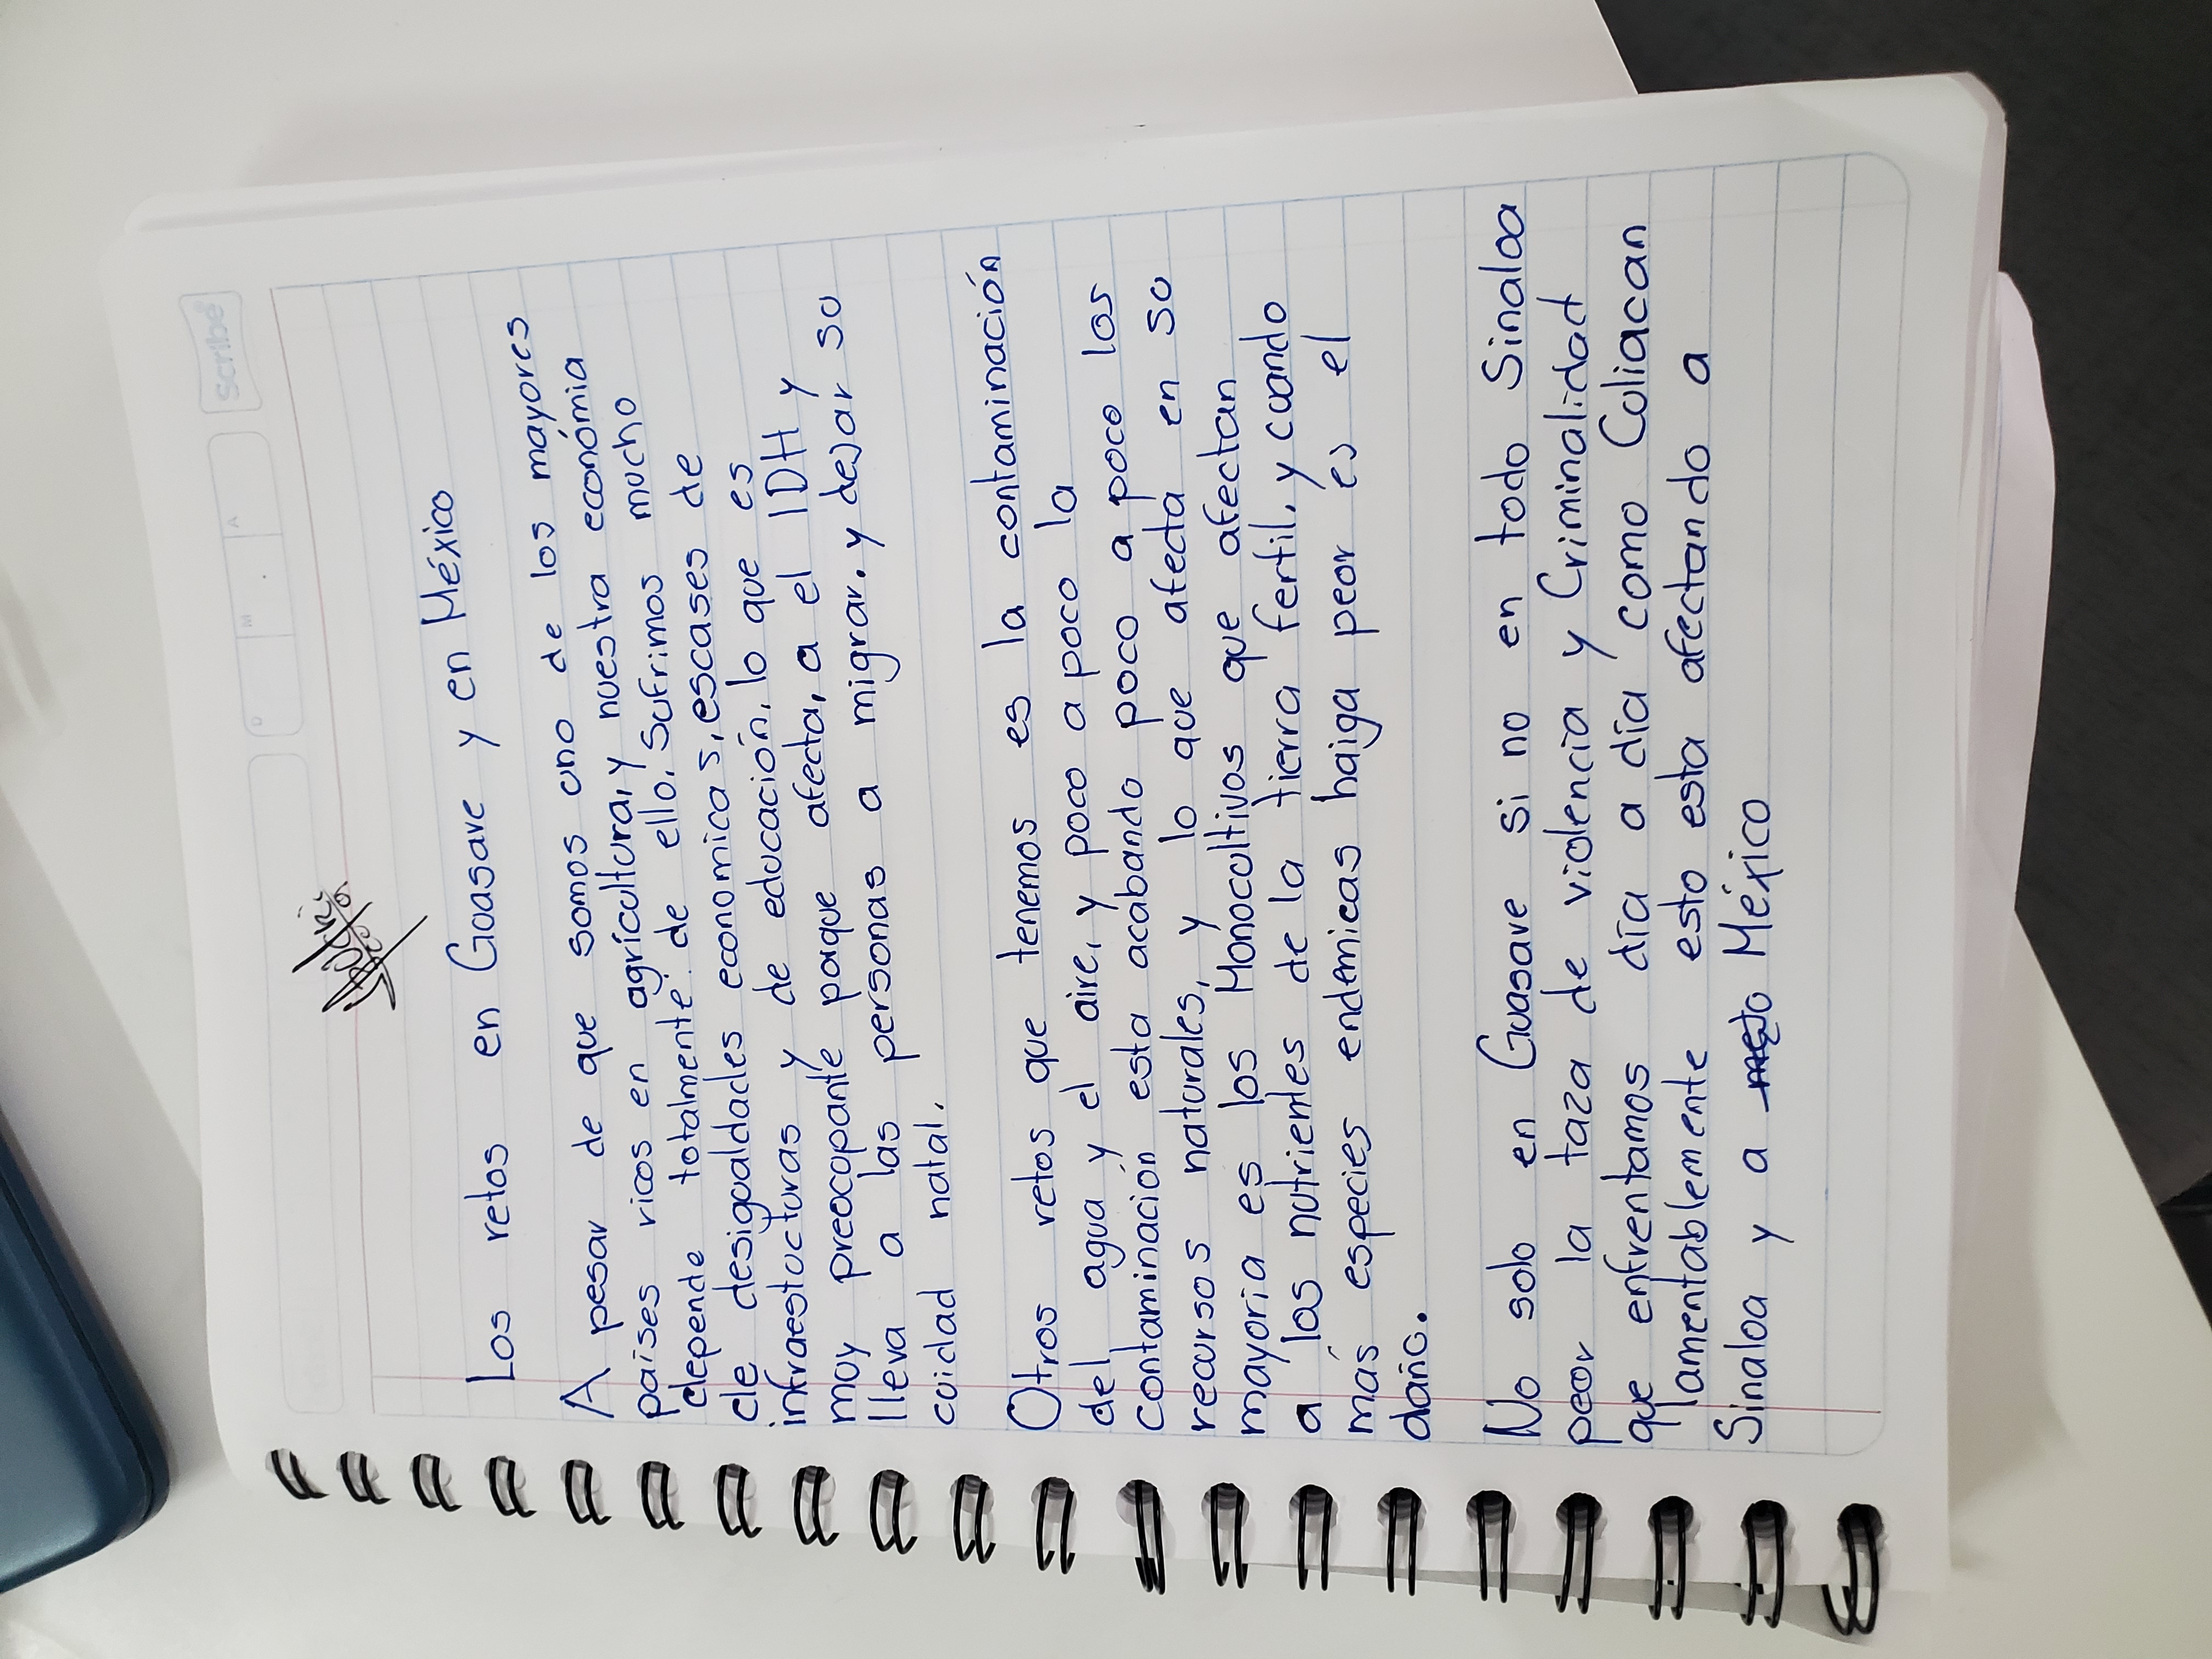 Scribe
D M A
Los retos en Guasave y en México
A pesar de que somos uno de los máyores
países ricos en agrícultura, y nuestra económia
depende totalmente de ello, Sufrimos mucho
de desigualdades economicas, escases de
infraestucturas y de educación, lo que es
muy preocupante porque afecta, a el IDH y
lleva a las personas a migrar, y dejar su
cuidad natal.
Otros retos que tenemos es la contaminación
del agua y el aire, y poco a poco la
contaminación esta acabando poco a poco los
recursos naturales, y lo que afecta en su
mayoria es los Monocultivos que afectan
a los nutrientes de la tierra fertil, y cuando
más especies endemicas haiga peor es el
daño.
No solo en Guasave si no en todo Sinaloa
peor la taza de violencia y Criminalidad
que enfrentamos día a día como Culiacan
lamentablemente esto esta afectando a
Sinaloa y a México